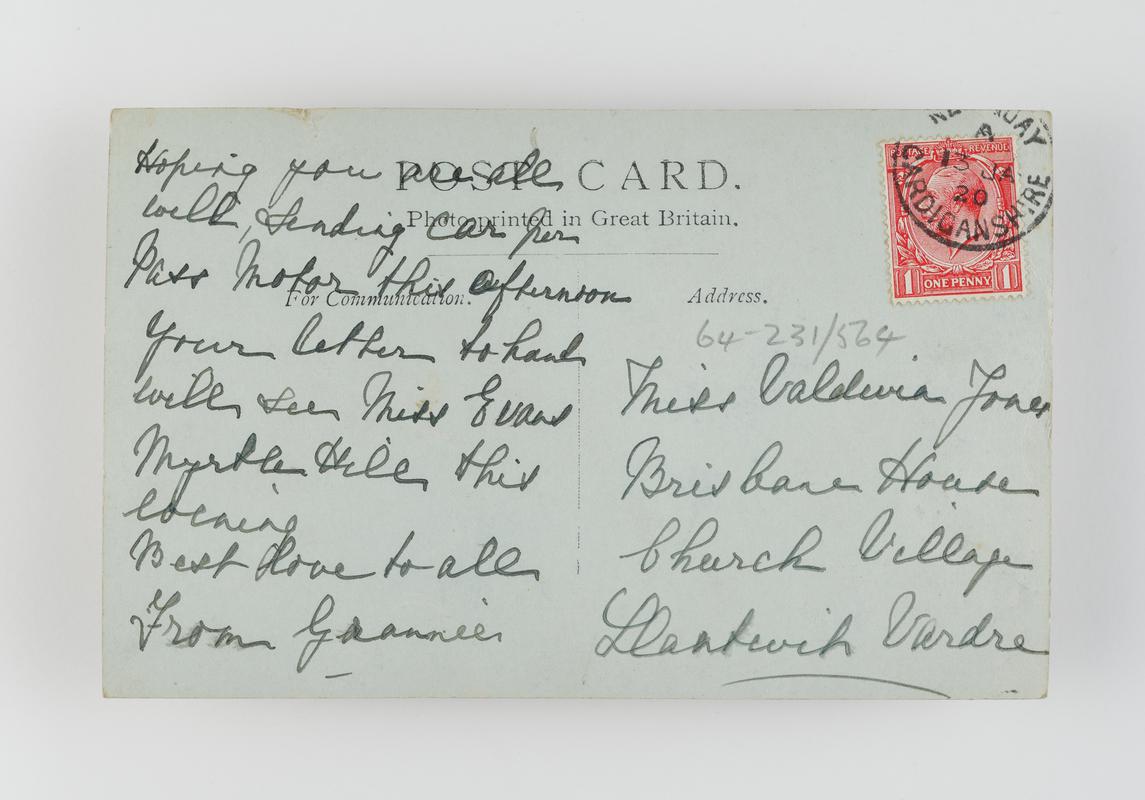 POST CARD.
Photo-printed in Great Britain.
For Communication.
Hoping you are all
well, Sending Car per
Pass Motor this afternoon
Your letter to hand
will see Miss Evans
Myrtle Hill this
evening
Best Love to all
From Grannie
Address.
64-231/564
Miss Valdwia Jones
Brisbane House
Church Village
Llantwit Vardre
POSTAGE REVENUE
1 ONE PENNY 1
NEW QUAY
13 JA
20
CARDIGANSHIRE